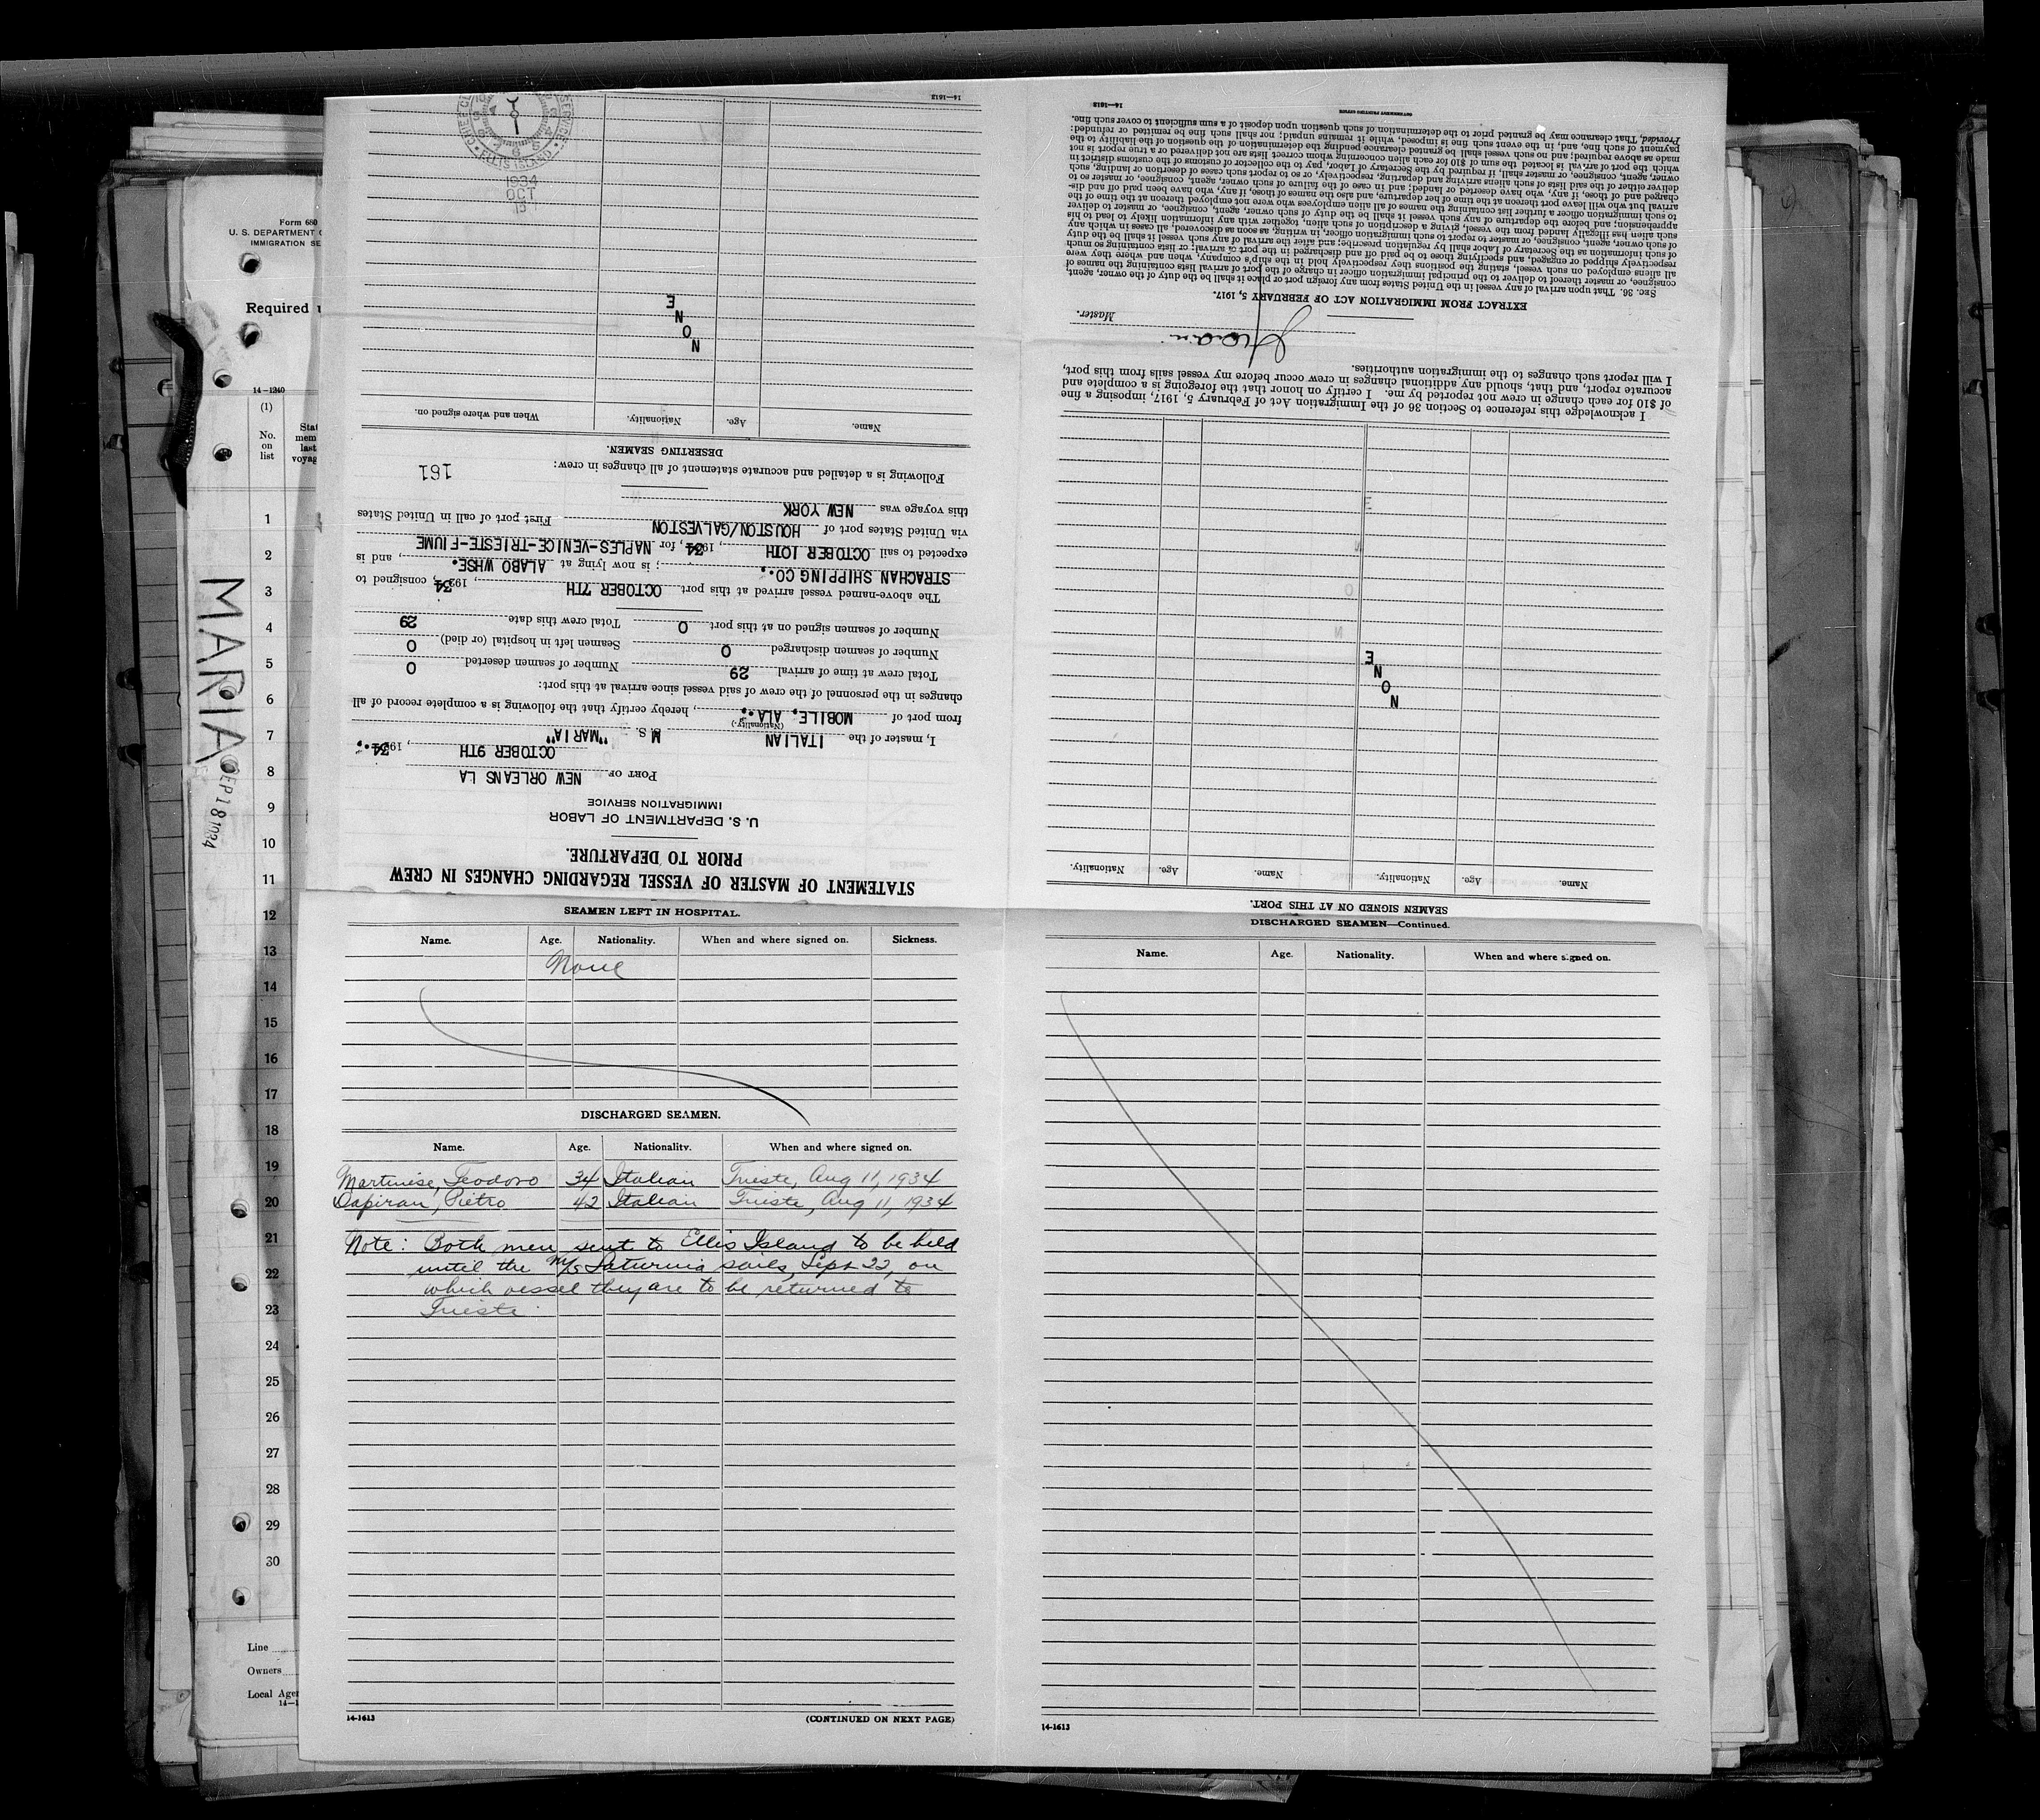 Form 680
U. S. DEPARTMENT
IMMIGRATION SE
Required
14-1240
(1)
No.
on
list
Stat
mem
last
voyag
1
2
3
4
5
6
7
8
9
10
11
12
13
14
15
16
17
18
19
20
21
22
23
24
25
26
27
28
29
30
MARIA
SEP 18 1934
Line
Owners
Local Age
14-1
STATEMENT OF MASTER OF VESSEL REGARDING CHANGES IN CREW
PRIOR TO DEPARTURE.
U. S. DEPARTMENT OF LABOR
IMMIGRATION SERVICE
PORT OF NEW ORLEANS LA
OCTOBER 9TH, 1934.
I, master of the ITALIAN M.S. "MARIA"
(Nationality.)
from port of MOBILE, ALA., hereby certify that the following is a complete record of all
changes in the personnel of the crew of said vessel since arrival at this port:
Total crew at time of arrival 29 Number of seamen deserted 0
Number of seamen discharged 0 Seamen left in hospital (or died) 0
Number of seamen signed on at this port 0 Total crew this date 29
The above-named vessel arrived at this port OCTOBER 7TH, 1934, consigned to
STRACHAN SHIPPING CO.; is now lying at ALABO WHSE., and is
expected to sail OCTOBER 10TH, 1934, for NAPLES-VENICE-TRIESTE-FIUME
via United States port of HOUSTON/GALVESTON First port of call in United States
this voyage was NEW YORK
Following is a detailed and accurate statement of all changes in crew: 161
DESERTING SEAMEN.
Name. Age. Nationality. When and where signed on.
N
O
N
E
13
OCT
1934
ELLIS ISLAND
SERVICE
14—1613
SEAMEN SIGNED ON AT THIS PORT.
Name. Age. Nationality. Name. Age. Nationality.
N
O
N
E
I acknowledge this reference to Section 36 of the Immigration Act of February 5, 1917, imposing a fine
of $10 for each change in crew not reported by me. I certify on honor that the foregoing is a complete and
accurate report, and that, should any additional changes in crew occur before my vessel sails from this port,
I will report such changes to the immigration authorities.
Master.
EXTRACT FROM IMMIGRATION ACT OF FEBRUARY 5, 1917.
SEC. 36. That upon arrival of any vessel in the United States from any foreign port or place it shall be the duty of the owner, agent,
consignee, or master thereof to deliver to the principal immigration officer in charge of the port of arrival lists containing the names of
all aliens employed on such vessel, stating the positions they respectively hold in the ship's company, when and where they were
respectively shipped or engaged, and specifying those to be paid off and discharged in the port of arrival; or lists containing so much
of such information as the Secretary of Labor shall by regulation prescribe; and after the arrival of any such vessel it shall be the duty
of such owner, agent, consignee, or master to report to such immigration officer, in writing, as soon as discovered, all cases in which any
such alien has illegally landed from the vessel, giving a description of such alien, together with any information likely to lead to his
apprehension; and before the departure of any such vessel it shall be the duty of such owner, agent, consignee, or master to deliver
to such immigration officer a further list containing the names of all alien employees who were not employed thereon at the time of the
arrival but who will leave port thereon at the time of her departure, and also the names of those, if any, who have been paid off and dis-
charged and of those, if any, who have deserted or landed; and in case of the failure of such owner, agent, consignee, or master so to
deliver either of the said lists of such aliens arriving and departing, respectively, or so to report such cases of desertion or landing, such
owner, agent, consignee, or master, shall, if required by the Secretary of Labor, pay to the collector of customs of the customs district in
which the port of arrival is located the sum of $10 for each alien concerning whom correct lists are not delivered or a true report is not
made as above required; and no such vessel shall be granted clearance pending the determination of the question of the liability to the
payment of such fine, and, in the event such fine is imposed, while it remains unpaid; nor shall such fine be remitted or refunded:
Provided, That clearance may be granted prior to the determination of such question upon deposit of a sum sufficient to cover such fine.
GOVERNMENT PRINTING OFFICE
14—1613
SEAMEN LEFT IN HOSPITAL.
Name. Age. Nationality. When and where signed on. Sickness.
None
DISCHARGED SEAMEN.
Name. Age. Nationality. When and where signed on.
Martinise, Teodoro 34 Italian Trieste, Aug 11, 1934
Dapiran, Pietro 42 Italian Trieste, Aug 11, 1934
Note: Both men sent to Ellis Island to be held
until the M/S Saturnia sails, Sept 22, on
which vessel they are to be returned to
Trieste.
14-1613 (CONTINUED ON NEXT PAGE)
DISCHARGED SEAMEN—Continued.
Name. Age. Nationality. When and where signed on.
14-1613